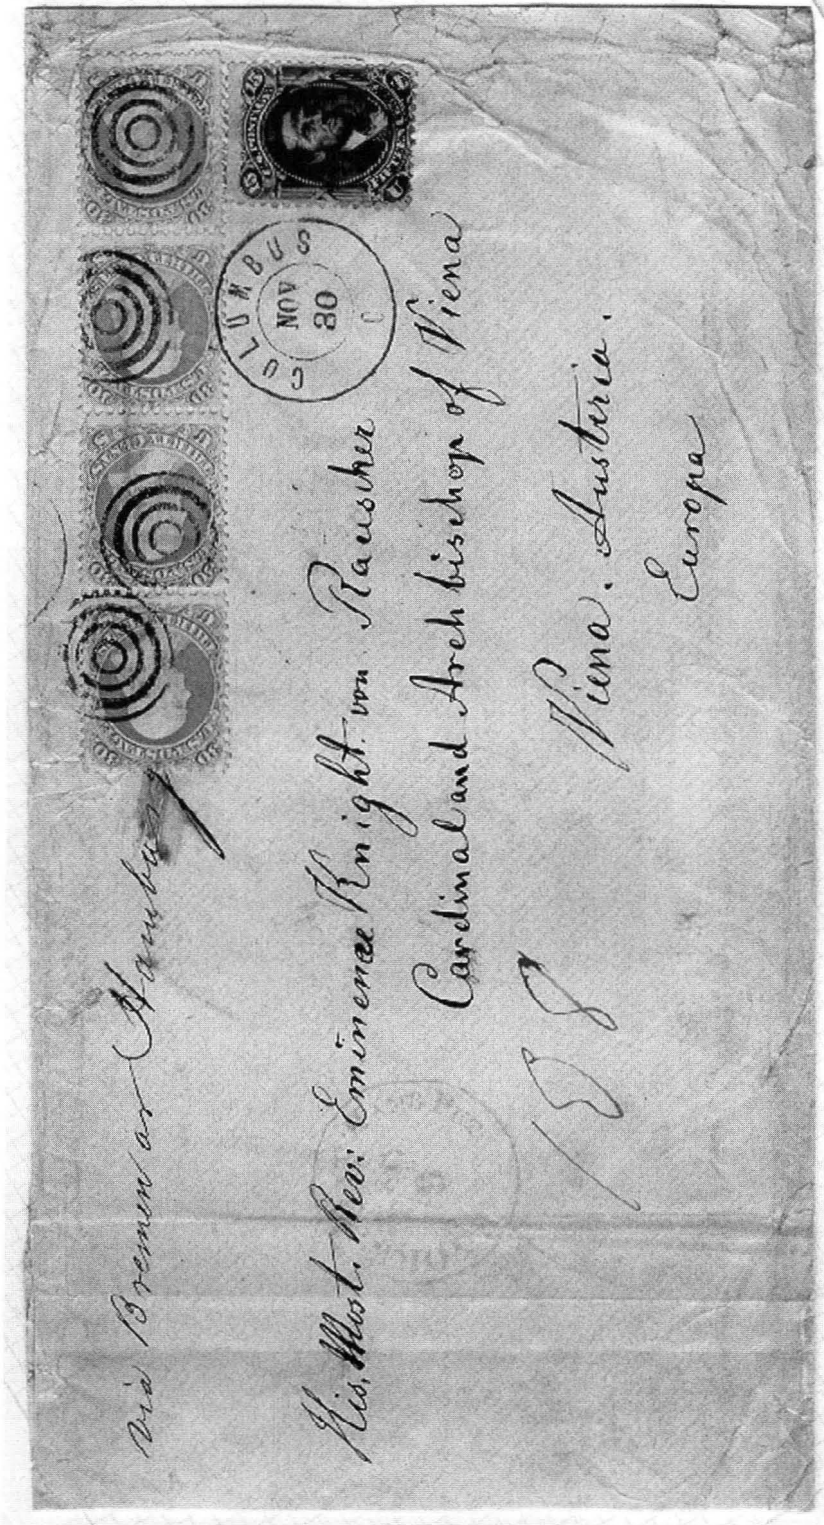 via Bremen or Hamburg
COLUMBUS
NOV
30
O
His, Most. Rev: Eminence Knight von Rauscher
Cardinal and Arch bischop of Viena
Viena. Austria.
Europa